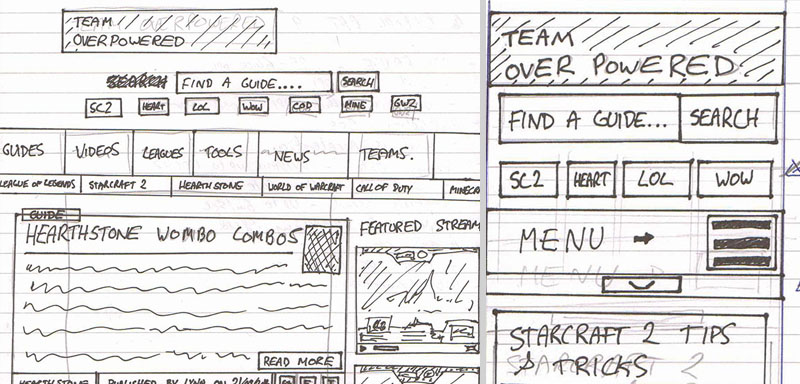 TEAM
OVERPOWERED
SEARCH FIND A GUIDE.... SEARCH
SC2 HEART LOL WOW COD MINE GW2
GUIDES VIDEOS LEAGUES TOOLS NEWS TEAMS.
LEAGUE OF LEGENDS STARCRAFT 2 HEARTHSTONE WORLD OF WARCRAFT CALL OF DUTY MINECRA
GUIDE
HEARTHSTONE WOMBO COMBOS
FEATURED STREAM
READ MORE
HEARTHSTONE PUBLISHED BY ON
TEAM
OVER POWERED
FIND A GUIDE... SEARCH
SC2 HEART LOL WOW
MENU →
STARCRAFT 2 TIPS
& TRICKS